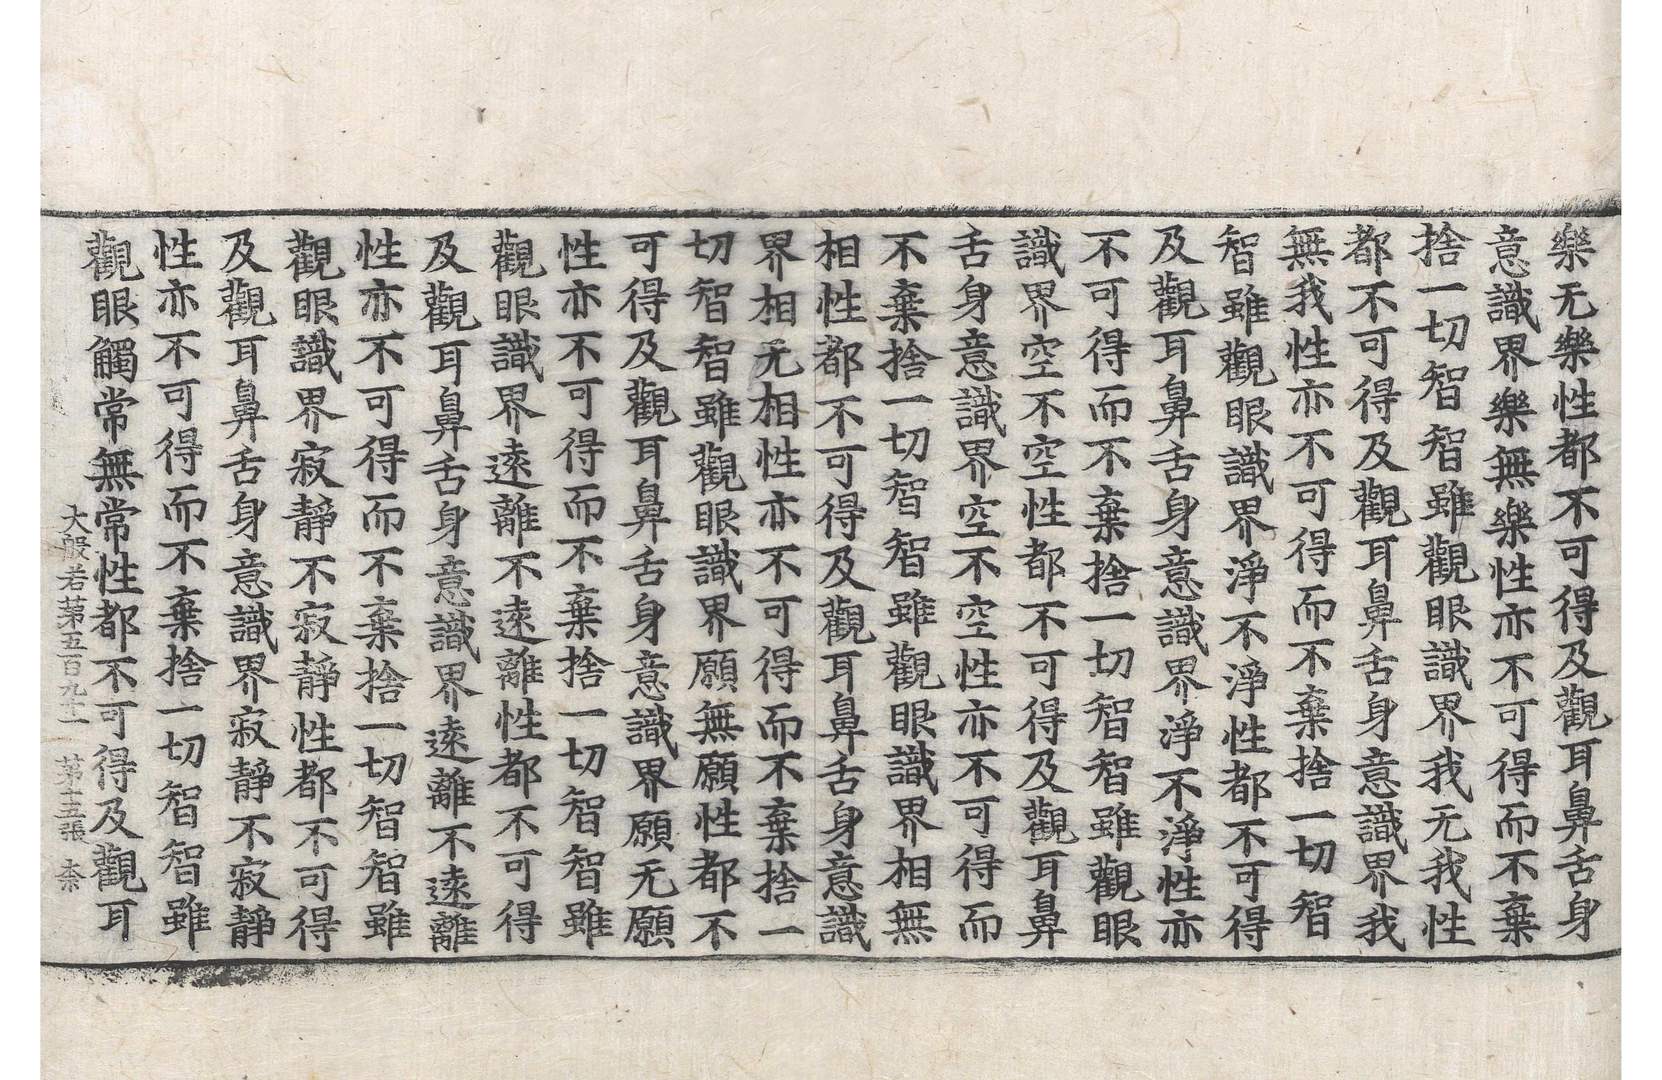 樂无樂性都不可得及觀耳鼻舌身
意識界樂無樂性亦不可得而不棄
捨一切智智雖觀眼識界我无我性
都不可得及觀耳鼻舌身意識界我
無我性亦不可得而不棄捨一切智
智雖觀眼識界淨不淨性都不可得
及觀耳鼻舌身意識界淨不淨性亦
不可得而不棄捨一切智智雖觀眼
識界空不空性都不可得及觀耳鼻
舌身意識界空不空性亦不可得而
不棄捨一切智智雖觀眼識界相無
相性都不可得及觀耳鼻舌身意識
界相无相性亦不可得而不棄捨一
切智智雖觀眼識界願無願性都不
可得及觀耳鼻舌身意識界願无願
性亦不可得而不棄捨一切智智雖
觀眼識界遠離不遠離性都不可得
及觀耳鼻舌身意識界遠離不遠離
性亦不可得而不棄捨一切智智雖
觀眼識界寂靜不寂靜性都不可得
及觀耳鼻舌身意識界寂靜不寂靜
性亦不可得而不棄捨一切智智雖
觀眼觸常無常性都不可得及觀耳
大般若苐五百九十一 苐十五張 柰